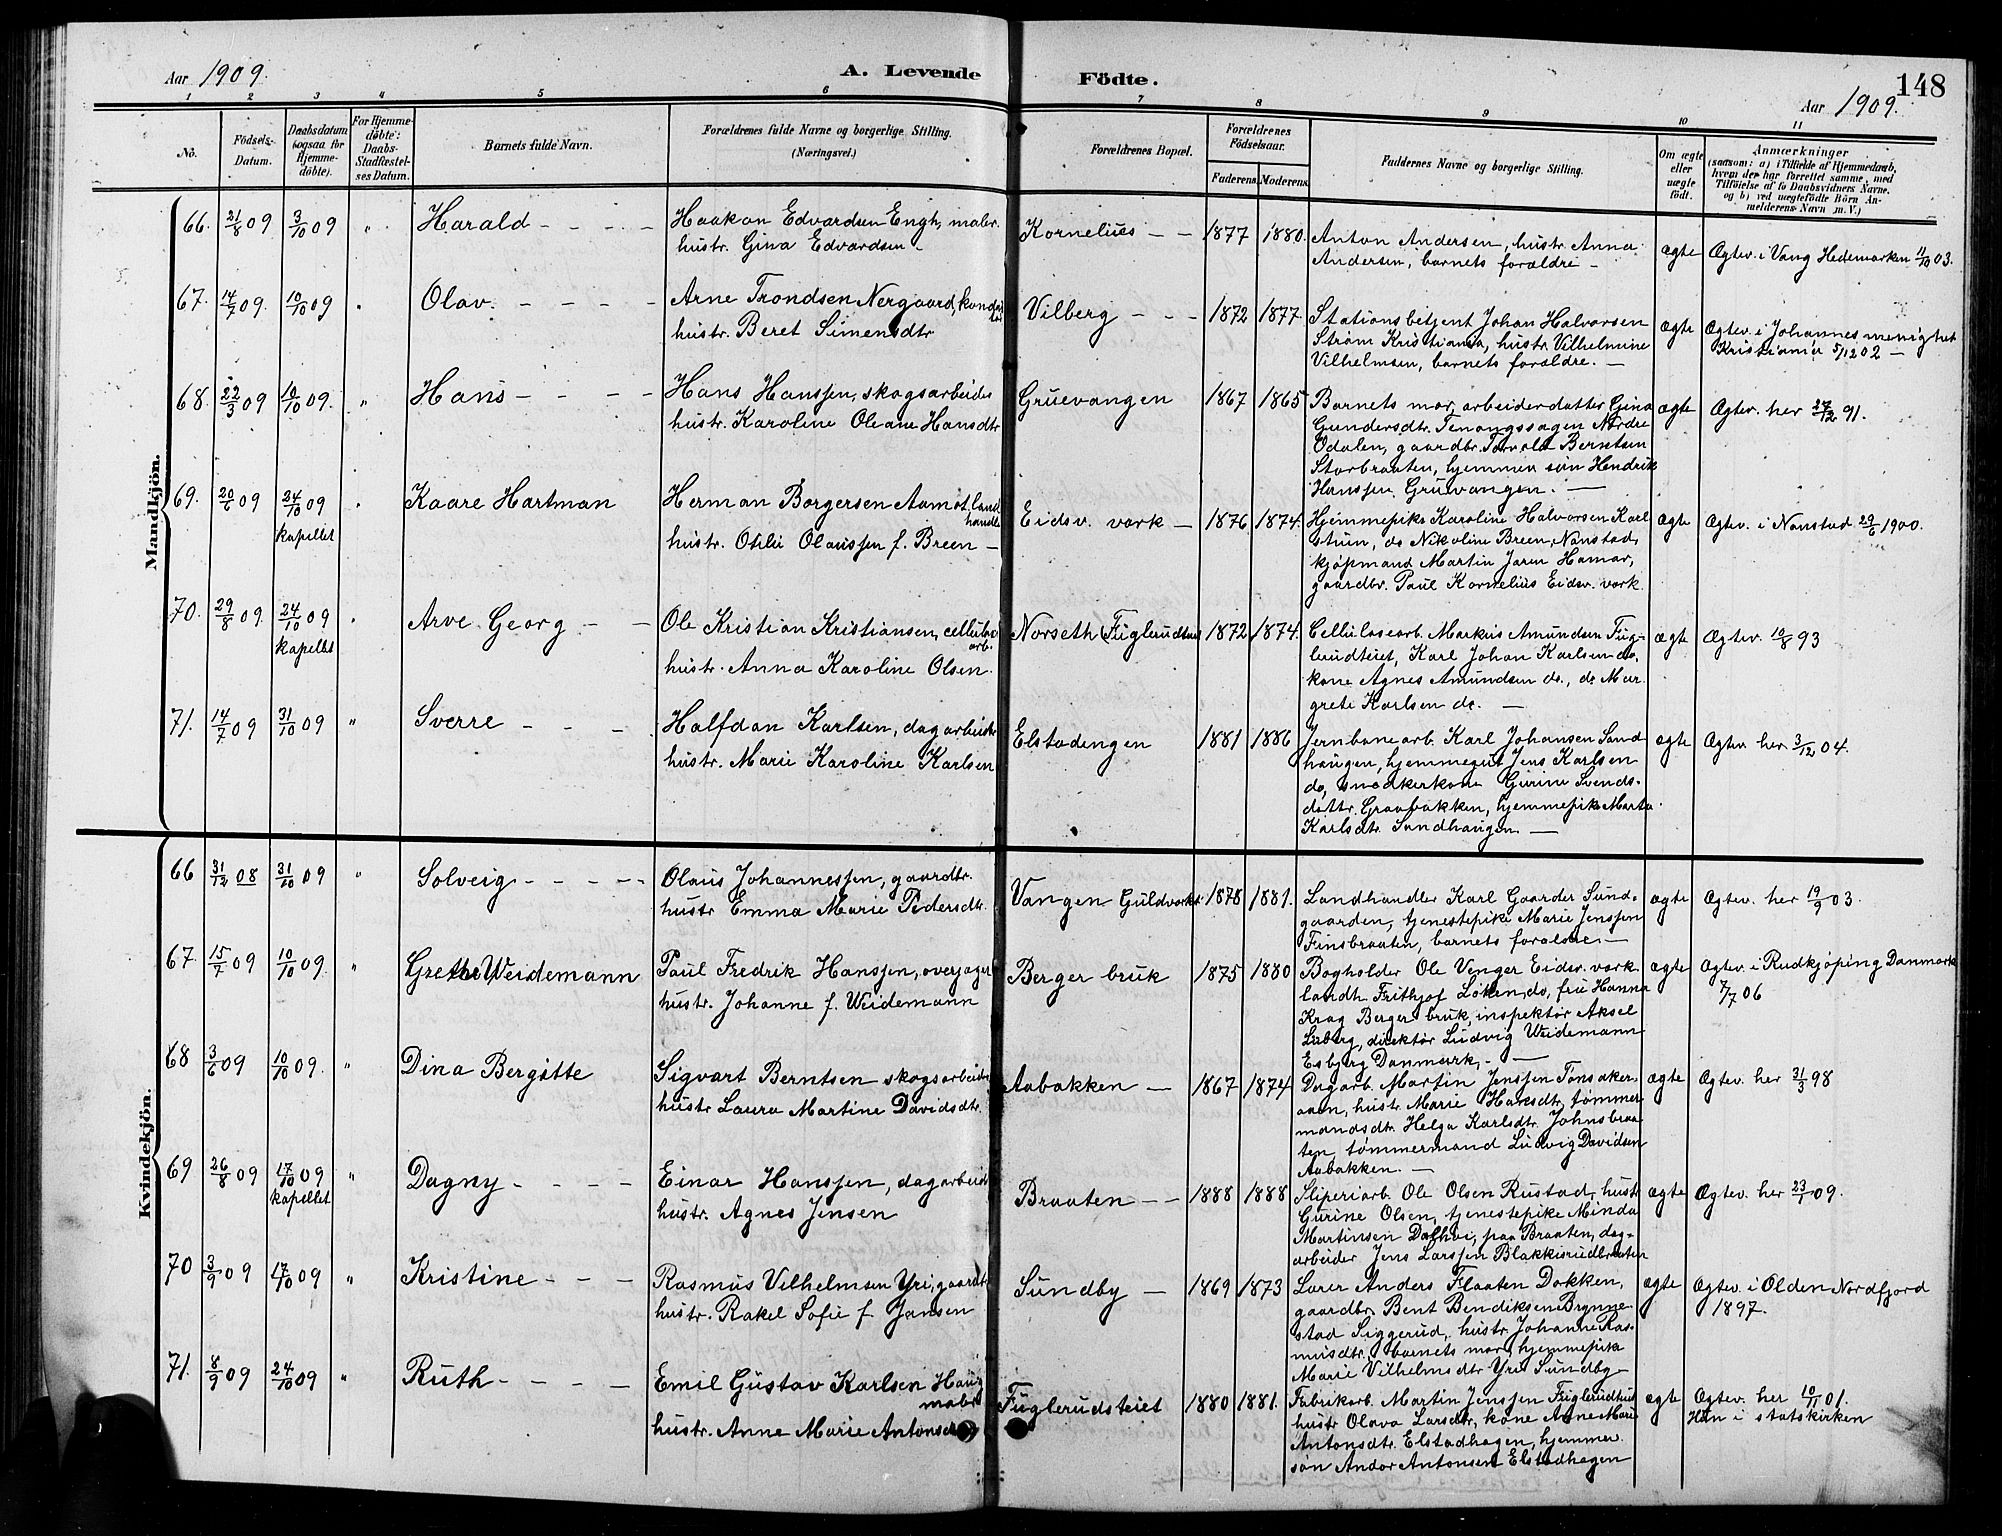 Aar 1909.
A. Levende Födte.
148
Aar 1909.
1 2 3 4 5 6 7 8 9 10 11
No.
Födsels-Datum.
Daabsdatum (ogsaa for Hjemme-döbte).
For Hjemme-döbte: Daabs-Stadfæstel-ses Datum.
Barnets fulde Navn.
Forældrenes fulde Navne og borgerlige Stilling.
(Næringsvei.)
Forældrenes Bopæl.
Forældrenes Födselsaar.
Faderens. Moderens.
Faddernes Navne og borgerlige Stilling.
Om ægte eller uægte födt.
Anmærkninger
(saasom: a) i Tilfælde af Hjemmedaab,
hvem der har forrettet samme, med
Tilföielse af to Daabsvidners Navne.
og b) ved uægtefödte Börn An-
melderens Navn m. V.)
Mandkjön.
66. 21/8 09 3/10 09 " Harald - - - -
Haakon Edvardsen Engh, maler.
hustr. Gina Edvardsen -
Kornelius - - 1877 1880.
Anton Andersen, hustr. Anna
Andersen, barnets forældre -
ægte
Ægtev. i Vang Hedemarken 11/10 03.
67. 14/7 09. 10/10 09 " Olav. - - - -
Arne Trondsen Nergaard,
hustr. Beret Simensdtr
Vilberg - - - 1872 1877
Stationsbetjent Johan Halvorsen
Strøm Kristiania, hustr. Vilhelmine
Vilhelmsen, barnets forældre. -
ægte
Ægtev. i Johannes menighet
Kristiania 5/12 02 -
68. 22/3 09 10/10 09. " Hans - - - -
Hans Hanssen, skogsarbeider
hustr. Karoline Oleane Hansdtr
Gruevangen 1867 1865
Barnets mor, arbeiderdatter Gina
Gundersdtr. Nordre
Odalen, gaardbr. Berntsen
Storbraaten, hjemmev. søn Hendrik
Hanssen, Gruevangen. -
ægte
Ægtev. her 27/12 91.
69. 20/6 09 24/10 09 kapellet " Kaare Hartman
Herman Borgersen Aamot, land
handler
hustr. Otilie Olaussen f. Breen -
Eidsv. værk - 1876 1874.
Hjemmepike Karoline Halvorsen Karl
stuen, do Nikoline Breen, Nanstad,
kjøpmand Martin Hamar,
gaardbr. Paul Kornelius Eidsv. værk
ægte
Ægtev. i Nanstad 29/6 1900.
70. 29/8 09. 24/10 09 kapellet " Arve Georg - -
Ole Kristian Kristiansen, cellulose
arb.
hustr. Anna Karoline Olsen.
Norseth (Fuglerudteiet 1872 1874.
Cellulosearb. Markus Amundsen Fug-
lerudteiet, Karl Johan Karlsen do,
kone Agnes Amundsen do., do Mar-
grete Karlsen do. -
ægte
Ægtev. 10/8 93
71. 14/7 09 31/10 09 " Sverre - - -
Halfdan Karlsen, dagarbeider
hustr. Marie Karoline Karlsen
Elstadengen 1881 1886
Jernbanearb. Karl Johansen Sand
haugen, hjemmegut Jens Karlsen
do, snedkerkone Gurine Svends-
dattr. Graabakken, hjemmepike Marta
Karlsdtr. Sandhaugen -
ægte
Ægtev. her 3/12 04.
Kvindekjön.
66 31/12 08 31/10 09 " Solveig - - - - -
Olaus Johannessen, gaardbr.
hustr Emma Marie Pedersdtr.
Vangen Guldverket 1878 1881.
Landhandler Karl Gaarder Sund-
gaarden, tjenestepike Marie Jenssen
Finsbraaten, barnets forældre. -
ægte
Ægtev. her 19/9 03.
67 15/7 09 10/10 09. " Grethe Weidemann
Paul Fredrik Hanssen, overjæger
hustr. Johanne f. Weidemann
Berger bruk 1875 1880
Bogholder Ole Venger Eidsv. værk
landh. Frithjof Løken, do, fru Hanna
Krag Berger bruk, inspektør Aksel
direktør Ludvig Weidemann
Esbjerg Danmark, -
ægte
Ægtev. i Rudkjøping Danmark
7/7 06
68 3/6 09 10/10 09. " Dina Bergitte
Sigvart Berntsen skogsarbeider
hustr Laura Martine Davidsdtr.
Aabakken - 1867 1874
Dagarb. Martin Jenssen Tønsaker
aaen, hustr. Marie Hansdtr, tømmer
mandsdtr. Helga Karlsdtr. Johnsbraa-
ten, tømmermand Ludvig Davidsen
Aabakken. -
ægte
Ægtev. her 31/3 98
69 26/8 09 17/10 09 kapellet " Dagny - - - -
Einar Hanssen, dagarbeider
hustr. Agnes Jensen
Braaten - - 1888 1888
Sliperiarb. Ole Olsen Rustad, hustr
Gurine Olsen, tjenestepike Minda
Martinsen Dalhvi, paa Braaten, dag-
arbeider Jens Larssen Blakkisrudbraaten
ægte
Ægtev. her 23/1 09.
70 3/9 09 17/10 09 " Kristine - - -
Rasmus Vilhelmsen Yri, gaardbr
hustr. Rakel Sofie f. Jansen
Sundby - 1869 1873
Lærer Anders Flaaten Dokken,
gaardbr. Bent Bendiksen Brynne
stad Siggerud, hustr. Johanne Ras-
musdtr. barnets mor, hjemmepike
Marie Vilhelmsdtr Yri Sundby -
ægte
Ægtev. i Olden Nordfjord
1897.
71. 8/9 09 24/10 09 " Ruth - - - -
Emil Gustav Karlsen Haug
maler
hustr. Anne Marie Antonsdtr
Fuglerudsteiet 1880 1881.
Fabrikarb. Martin Jenssen Fuglerudteiet
hustr Olava Larsdtr, kone Anne Marie
Antonsdtr. Elstadhagen, hjemmev.
søn Andor Antonsen Elstadhagen
ægte
Ægtev. her 10/11 01.
Han i statskirken